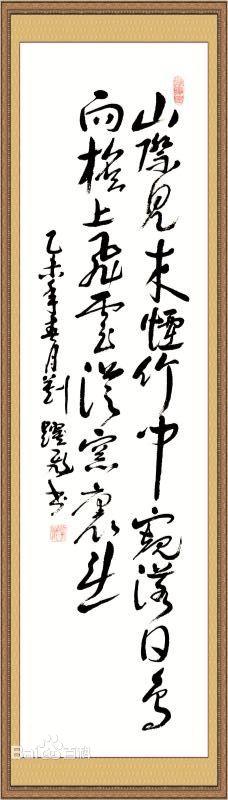 山際見来煙竹中窺落日鳥
向檐上飛雲從窗裏出
乙未年春月劉躍書
Baidu百科